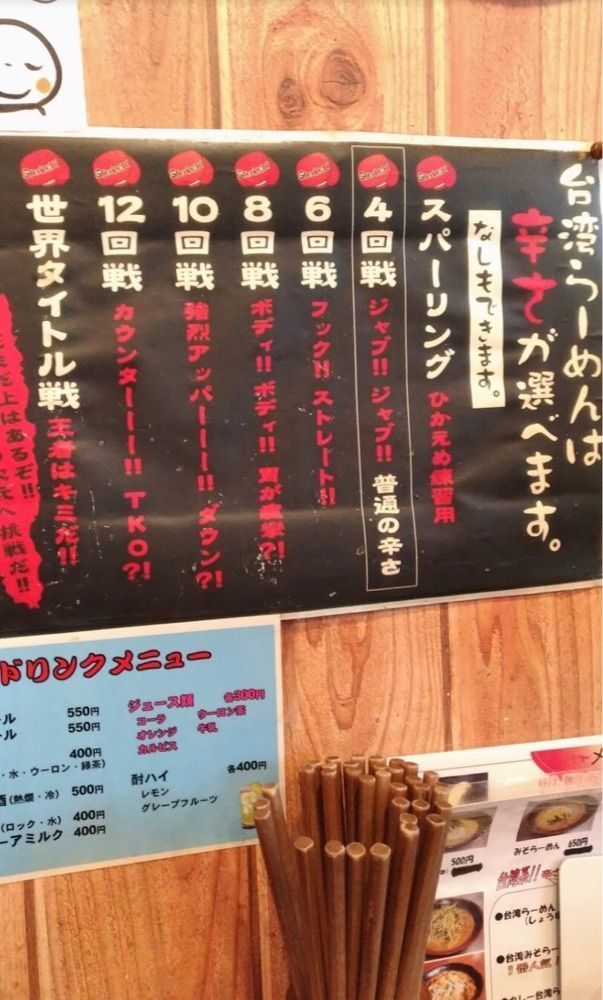 台湾らーめんは
辛さが選べます。
なしもできます。
スパーリング ひかえめ練習用
4回戦 ジャブ!! ジャブ!! 普通の辛さ
6回戦 フック!! ストレート!!
8回戦 ボディ!! ボディ!! 胃が悲鳴?!
10回戦 強烈アッパーーー!! ダウン?!
12回戦 カウンターーー!! TKO?!
世界タイトル戦 王者はキミだ!!
上はあるぞ!!
挑戦だ!!
ドリンクメニュー
ール 550円
ール 550円
400円
・水・ウーロン・緑茶)
酒(熱燗・冷) 500円
(ロック・水) 400円
ーアミルク 400円
ジュース類 各300円
コーラ ウーロン茶
オレンジ 牛乳
カルピス
酎ハイ 各400円
レモン
グレープフルーツ
メ
500円
みそらーめん 650円
台湾系!! 辛さ
●台湾らーめん
(しょうゆ
●台湾みそらー
1番人気!
カレー台湾ら